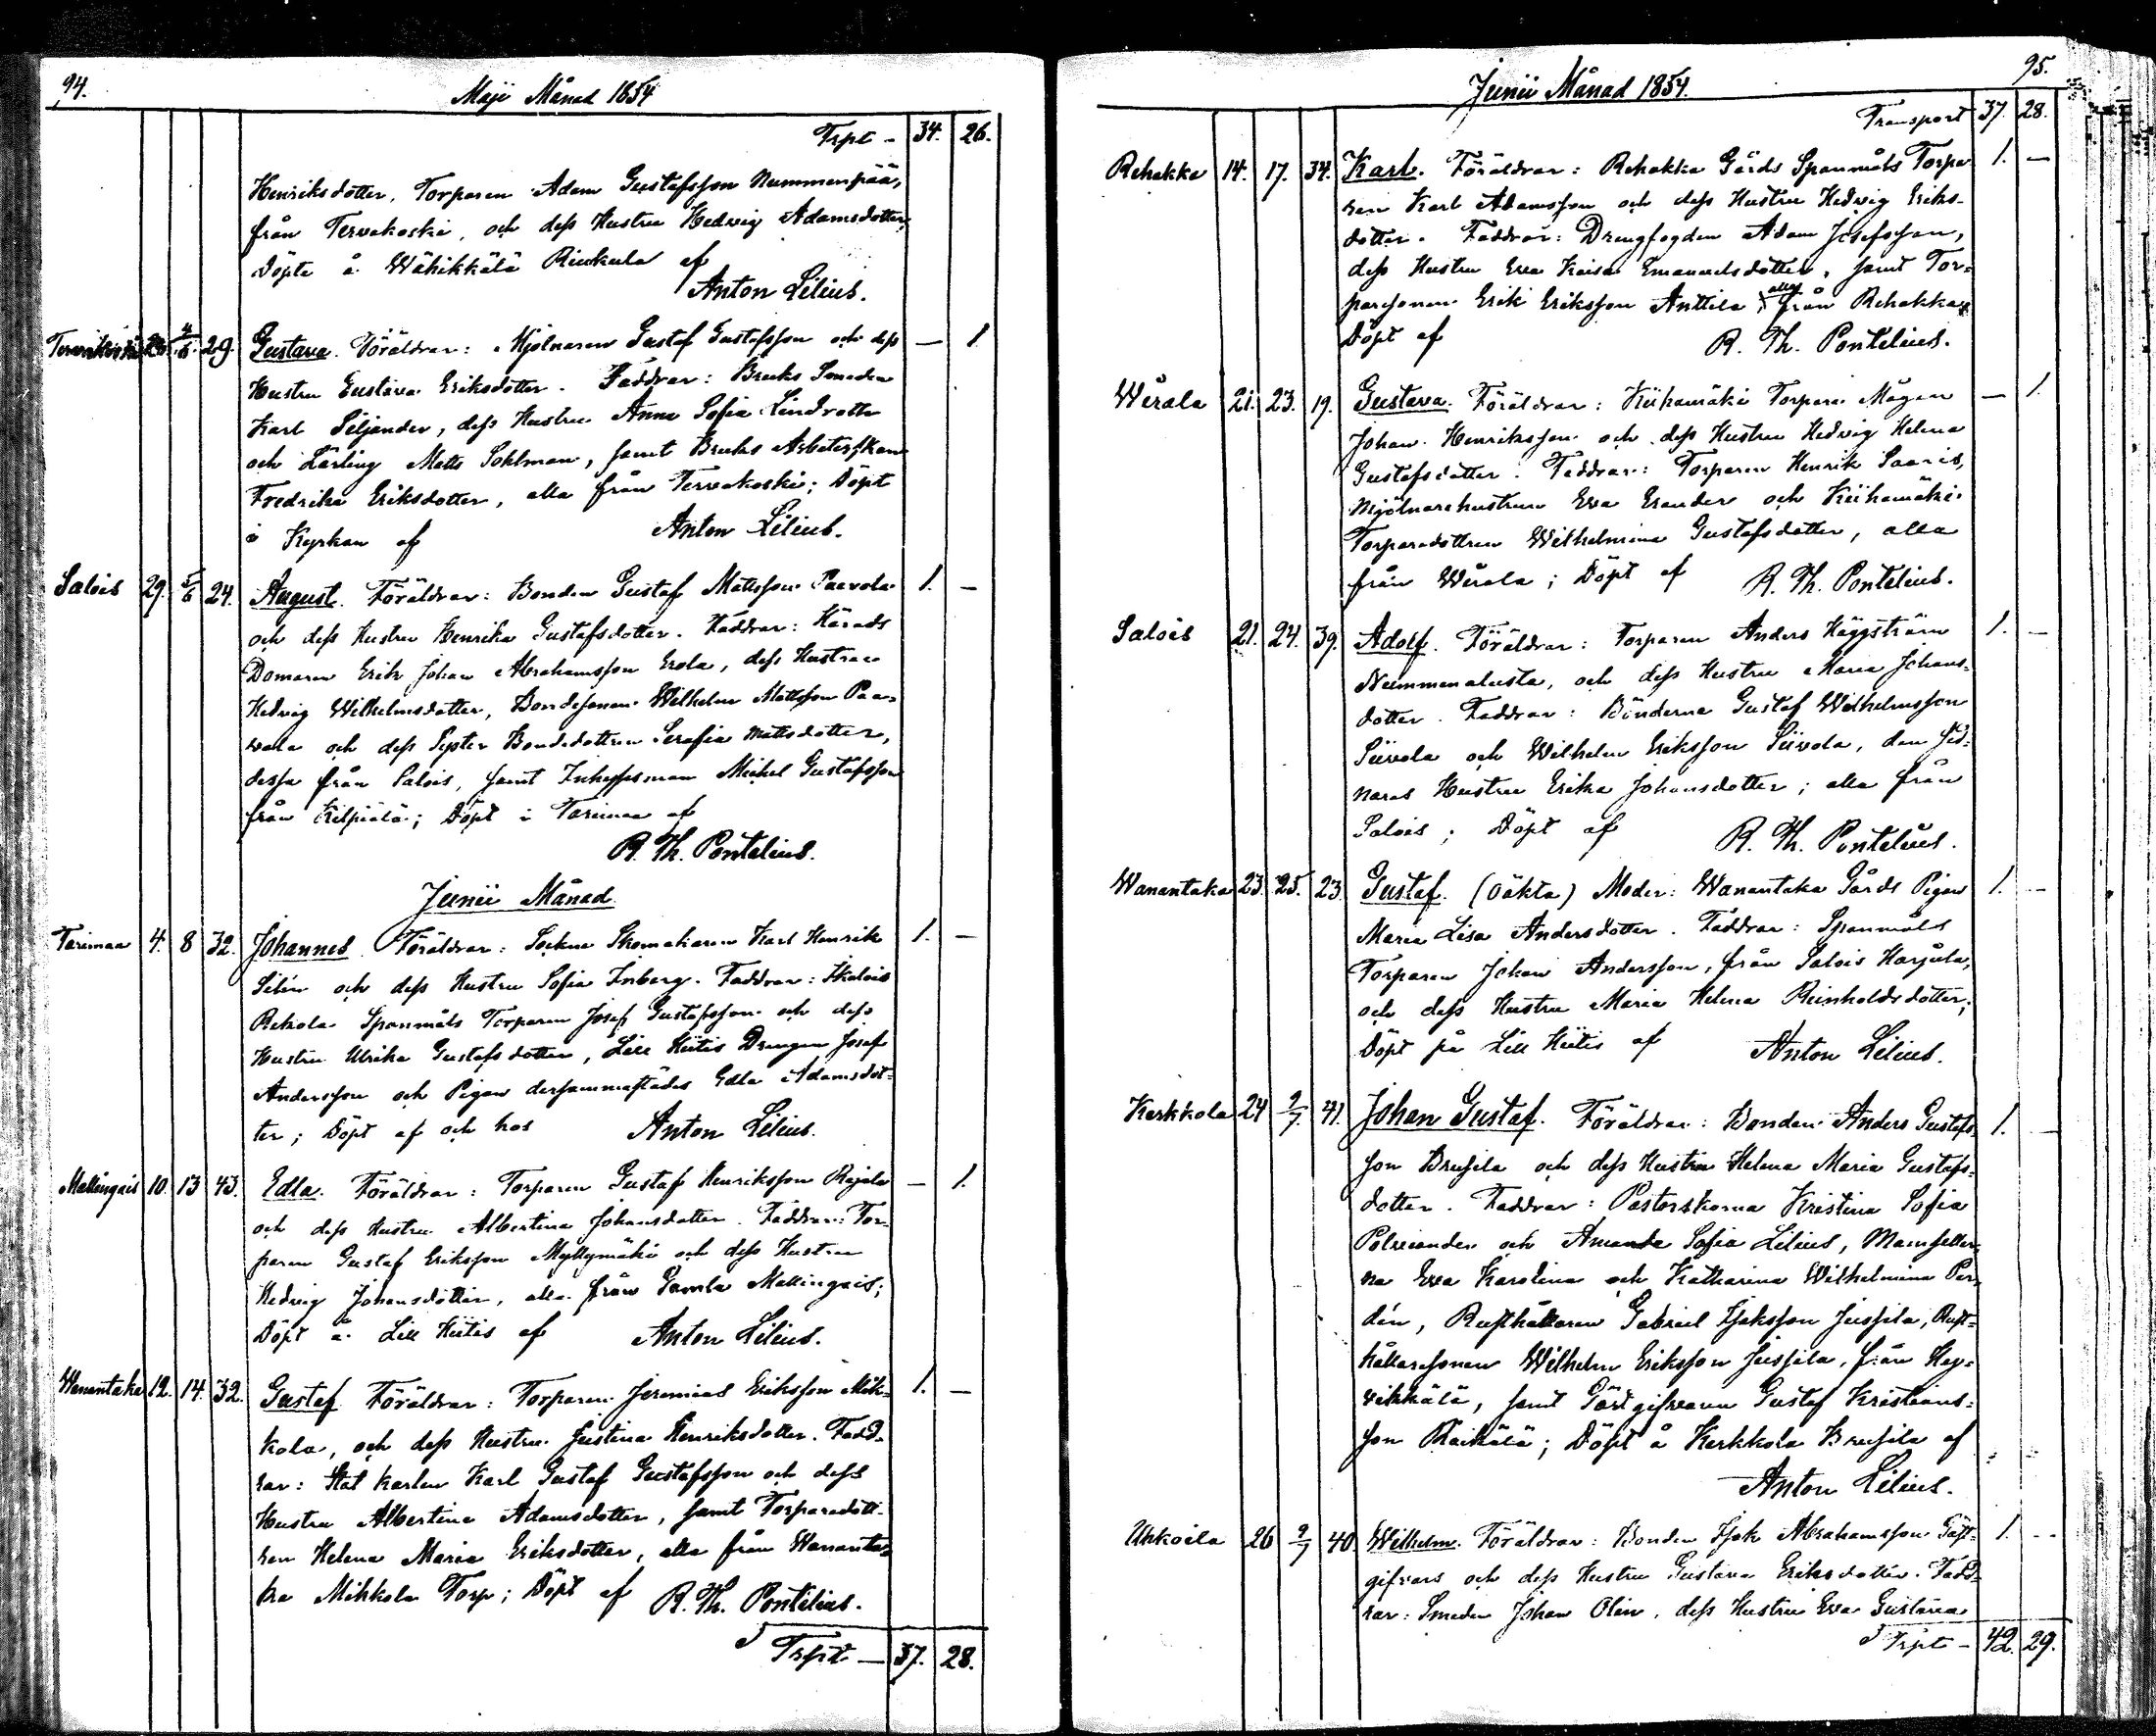 94.
Maji Månad 1854
Trpt - 34. 26.
Henriksdotter, Torparen Adam Gustafsson Nummenpää,
från Tervakoski, och dess Hustru Hedvig Adamsdotter,
Döpte å Wähikkälä Rinkula af
Anton Lilius.
Tervakoski 4/6 29. Gustava. Föräldrar: Mjölnaren Gustaf Gustafsson och dess — 1
Hustru Gustava Eriksdotter. Faddrar: Bruks Smeden
Karl Siljander, dess Hustru Anna Sofia Lindroth
och Lärling Matts Sohlman, samt Bruks Arbeterskan
Fredrika Eriksdotter, alla från Tervakoski; Döpt
i Kyrkan af Anton Lilius.
Salois 29. 5/6 24. August. Föräldrar: Bonden Gustaf Mattsson Paavola 1. —
och dess Hustru Henrika Gustafsdotter. Faddrar: Härads
Domaren Erik Johan Abrahamsson Erola, dess Hustru
Hedvig Wilhelmsdotter, Bondesonen Wilhelm Mattsson Paa-
vola och dess Syster Bondedottren Serafia Mattsdotter,
dessa från Salois, samt Inhysesman Michel Gustafsson
från Kilpiälä; Döpt i Tarimaa af
R. Th. Pontelius.
Junii Månad
Tarimaa 4. 8 32. Johannes. Föräldrar: Sockne Skomakaren Karl Henrik 1. —
Silén och dess Hustru Sofia Inberg. Faddrar: Skalois
Rekola Spanmåls Torparen Josef Gustafsson och dess
Hustru Ulrika Gustafsdotter, Lill Hiitis Drengen Josef
Andersson och Pigan dersammastädes Edla Adamsdot-
ter; Döpt af och hos Anton Lilius.
Mallingais 10. 13 43. Edla. Föräldrar: Torparen Gustaf Henriksson Rajala — 1.
och dess Hustru Albertina Johansdotter. Faddrar: Tor-
paren Gustaf Eriksson Myllymäki och dess Hustru
Hedvig Johansdotter, alla från Gamla Mallingais;
Döpt å Lill Hiitis af Anton Lilius.
Wanantaka 12. 14. 32. Gustaf. Föräldrar: Torparen Jeremias Eriksson Mik- 1. —
kola, och dess Hustru Justina Henriksdotter. Fadd-
rar: Stat karlen Karl Gustaf Gustafsson och dess
Hustru Albertina Adamsdotter, samt Torparedött-
ren Helena Maria Eriksdotter, alla från Wananta-
ka Mikkola Torp; Döpt af R. Th. Pontelius.
Trpt — 37. 28.
95.
Junii Månad 1854.
Transport 37. 28.
Rehakka 14. 17. 34. Karl. Föräldrar: Rehakka Gårds Spanmåls Torpa- 1. —
ren Karl Adamsson och dess Hustru Hedvig Eriks-
dotter. Faddrar: Drengfogden Adam Josefsson,
dess Hustru Eva Kaisa Emanuelsdotter, samt Tor-
paresonen Erik Eriksson Anttila, alla från Rehakka;
Döpt af R. Th. Pontelius.
Wårala 21. 23. 19. Gustava. Föräldrar: Kiikamäki Torpare Mågen — 1.
Johan Henriksson och dess Hustru Hedvig Helena
Gustafsdotter. Faddrar: Torparen Henrik Saaris,
Mjölnarehustrun Eva Erander och Kiikamäki
Torparedottren Wilhelmina Gustafsdotter, alla
från Wårala; Döpt af R. Th. Pontelius.
Salois 21. 24. 39. Adolf. Föräldrar: Torparen Anders Häggström 1. —
Nummenalusta, och dess Hustru Maria Johans-
dotter. Faddrar: Bönderna Gustaf Wilhelmsson
Siivola och Wilhelm Eriksson Siivola, den sed-
nares Hustru Erika Johansdotter; alla från
Salois; Döpt af R. Th. Pontelius.
Wanantaka 23. 25. 23. Gustaf. (Oäkta) Moder: Wanantaka Gårds Pigan 1. —
Maria Lisa Andersdotter. Faddrar: Spanmåls
Torparen Johan Andersson, från Salois Harjula,
och dess Hustru Maria Helena Reinholdsdotter;
Döpt på Lill Hiitis af Anton Lilius.
Kerkkola 24 2/7. 41. Johan Gustaf. Föräldrar: Bonden Anders Gustafs- 1. —
son Brusila och dess Hustru Helena Maria Gustafs-
dotter. Faddrar: Pastorskorna Kristina Sofia
Polviander och Amanda Sofia Lilius, Mamseller-
na Eva Karolina och Katharina Wilhelmina Per-
dén, Rusthållaren Gabriel Isaksson Jussila, Rust-
hållaresonen Wilhelm Eriksson Jussila, från Hay-
vikkälä, samt Gästgifvaren Gustaf Kristians-
son Raikälä; Döpt å Kerkkola Brusila af
Anton Lilius.
Uhkoila 26 2/7 40. Wilhelm. Föräldrar: Bonden Isak Abrahamsson Gäst- 1. —
gifvars och dess Hustru Gustava Eriksdotter. Fadd-
rar: Smeden Johan Olin, dess Hustru Eva Gustava
Trpt — 42. 29.